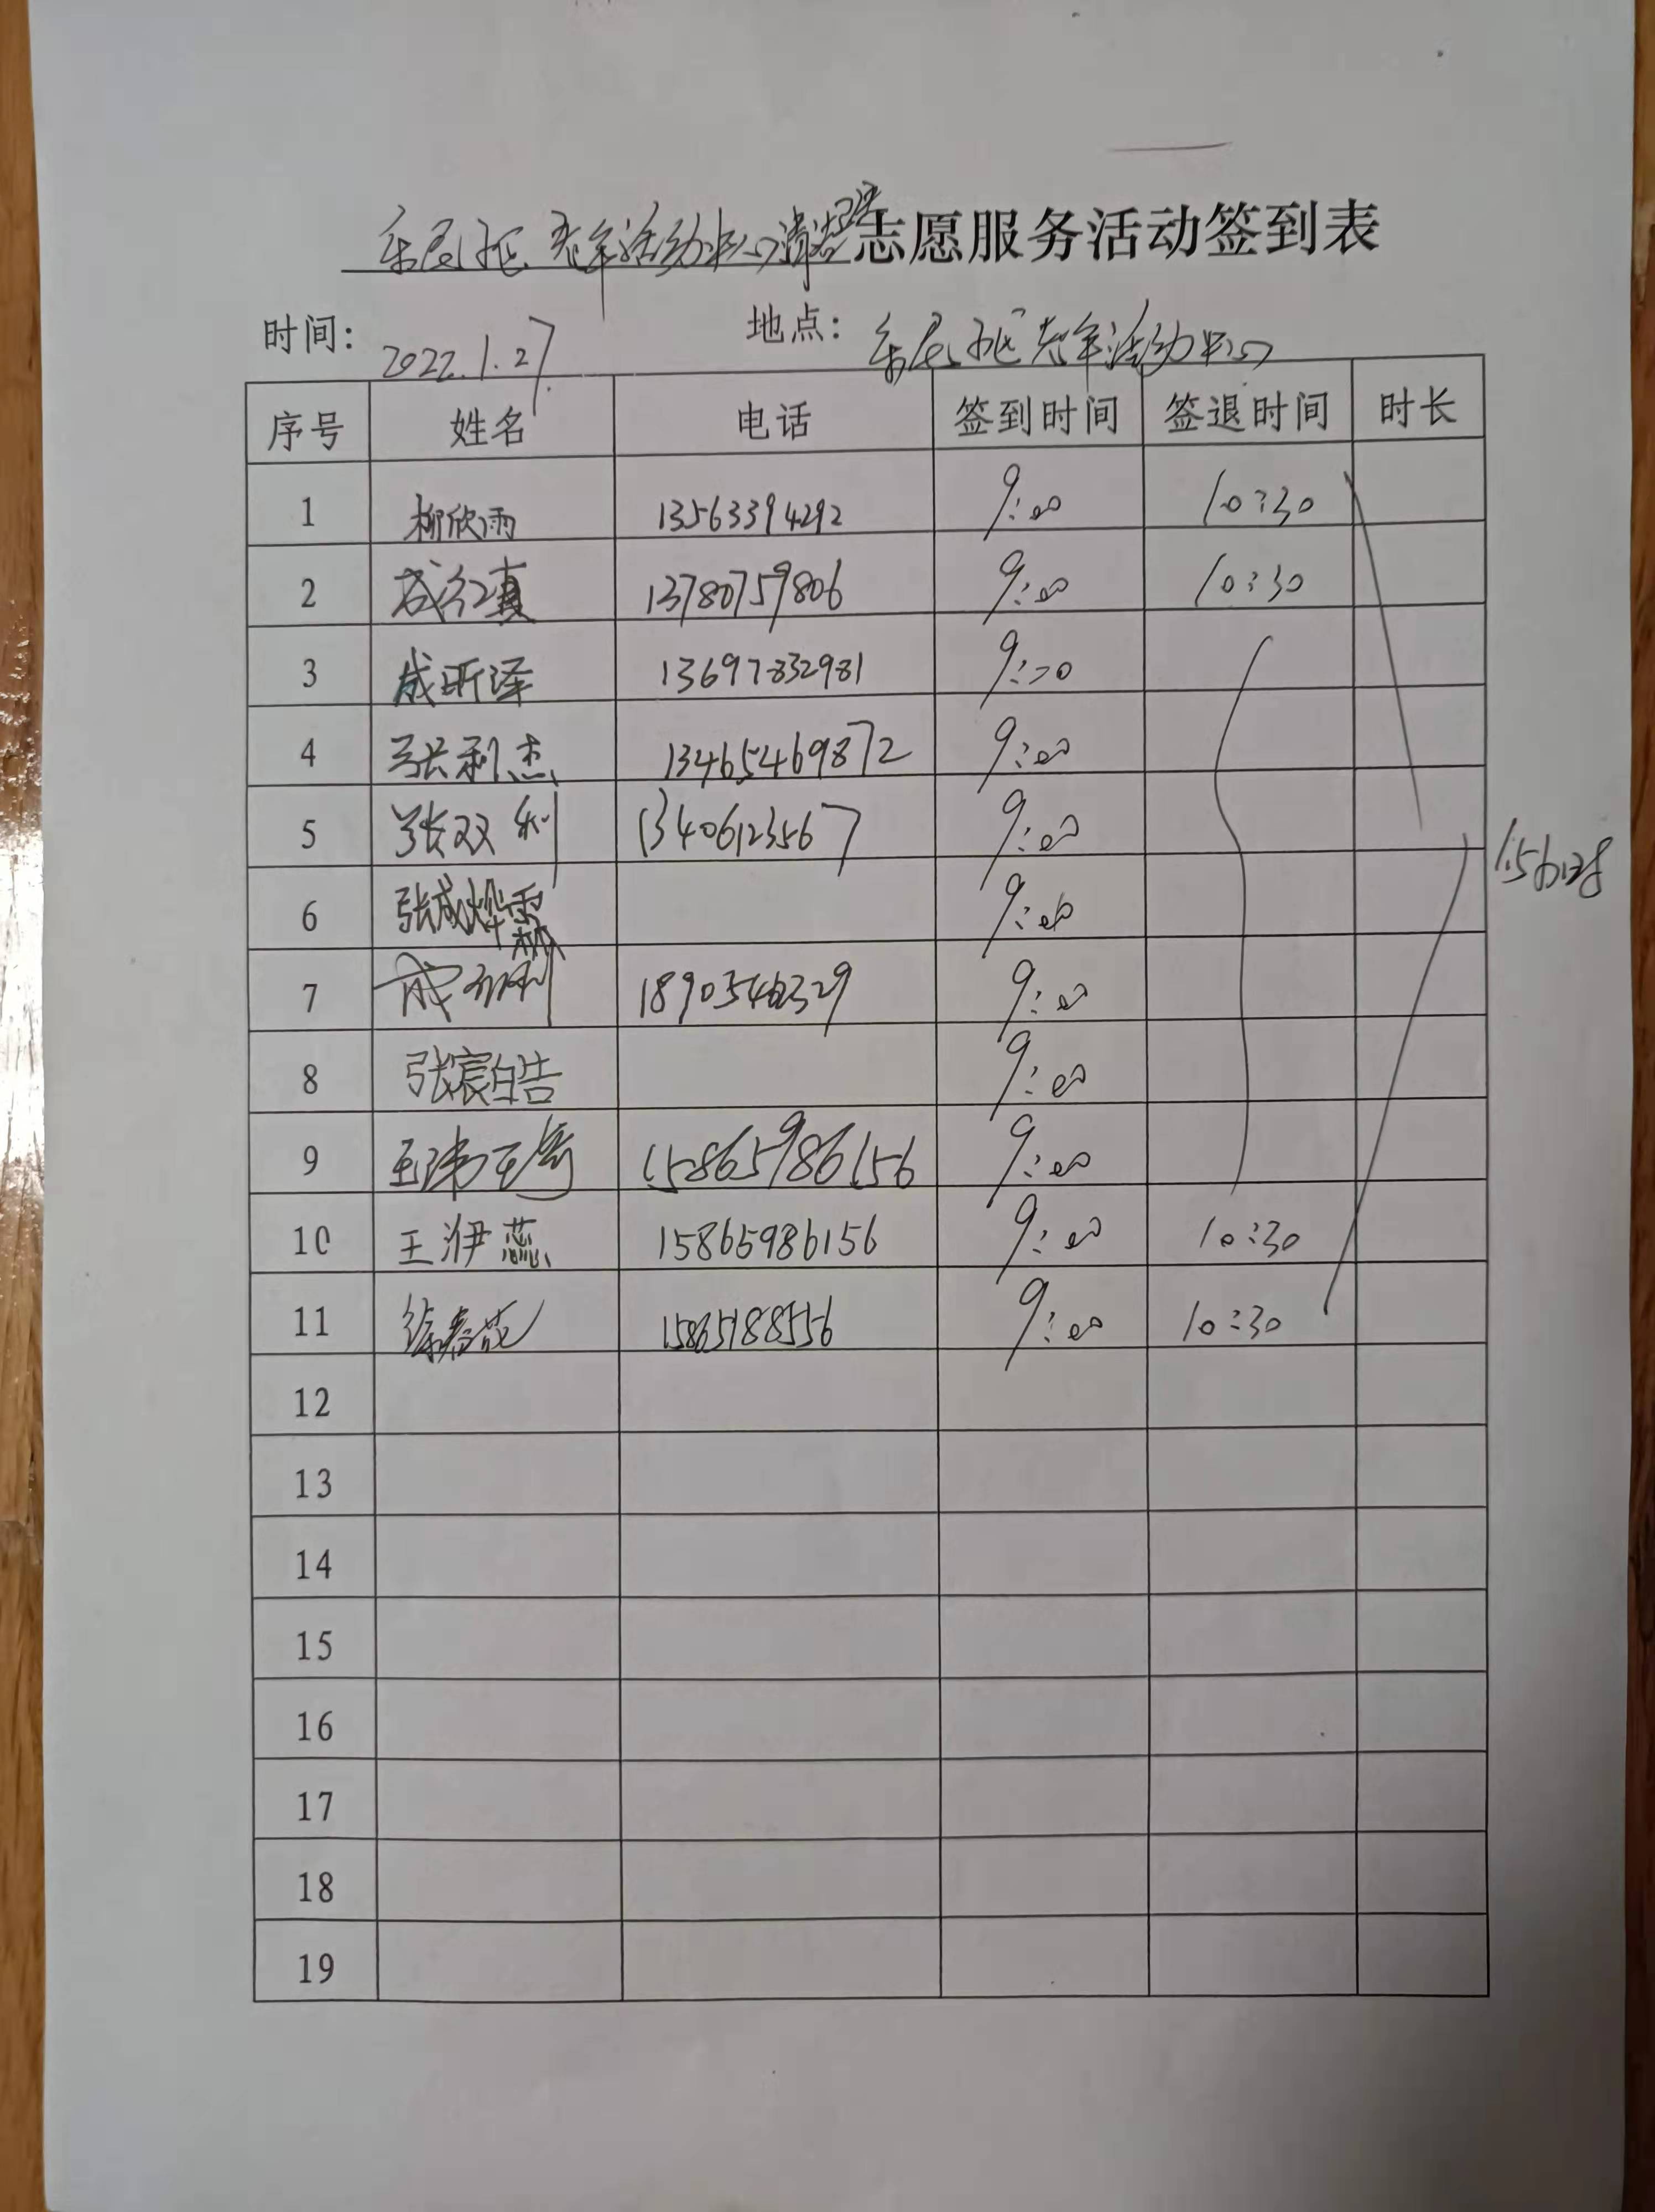 东居社区老年活动中心清洁志愿服务活动签到表
时间: 2022.1.27 地点: 东居社区老年活动中心
序号 姓名 电话 签到时间 签退时间 时长
1 柳欣雨 13563394292 9:00 10:30
2 13780759806 9:00 10:30
3 成昕泽 13697832981
4 张利杰 13465469872 9:00
5 张双利 13406123567 9:00
6 张成烨霖 9:00
7 9:00
8 张宸皓 9:00
9 15865986156 9:00
10 王洢蕊 15865986156 9:00 10:30
11 徐春花 9:00 10:30
12
13
14
15
16
17
18
19
1.5小时